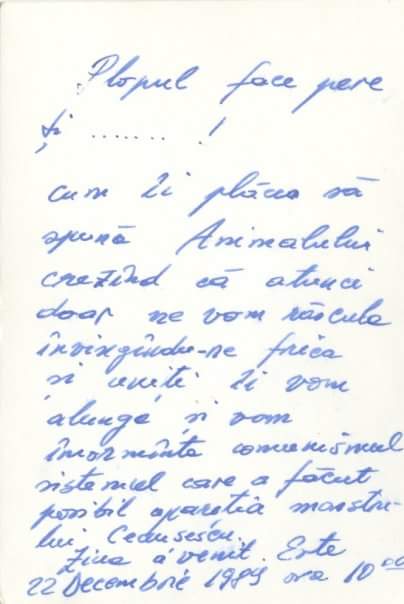 Plopul face pere
și ....... !
cum îi plăcea să
spună Animalului
crezînd că atunci
doar ne vom răscula
învingîndu-ne frica
și uniți îi vom
alunga și vom
înormînta comunismul
sistemul care a făcut
posibil apariția monstru-
lui Ceaușescu.
Ziua a venit. Este
22 Decembrie 1989 ora 10 00